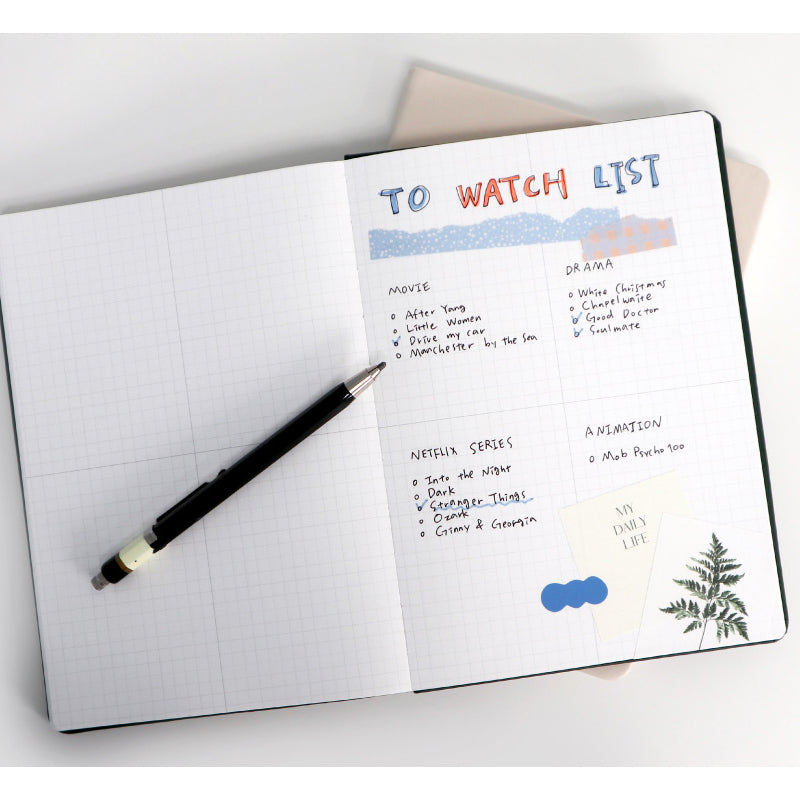 TO WATCH LIST
MOVIE
After Yang
Little Women
Drive my car
Manchester by the Sea
DRAMA
White Christmas
Chapelwaite
Good Doctor
Soulmate
NETFLIX SERIES
Into the Night
Dark
Stranger Things
Ozark
Ginny & Georgia
ANIMATION
Mob Psycho 100
MY
DAILY
LIFE